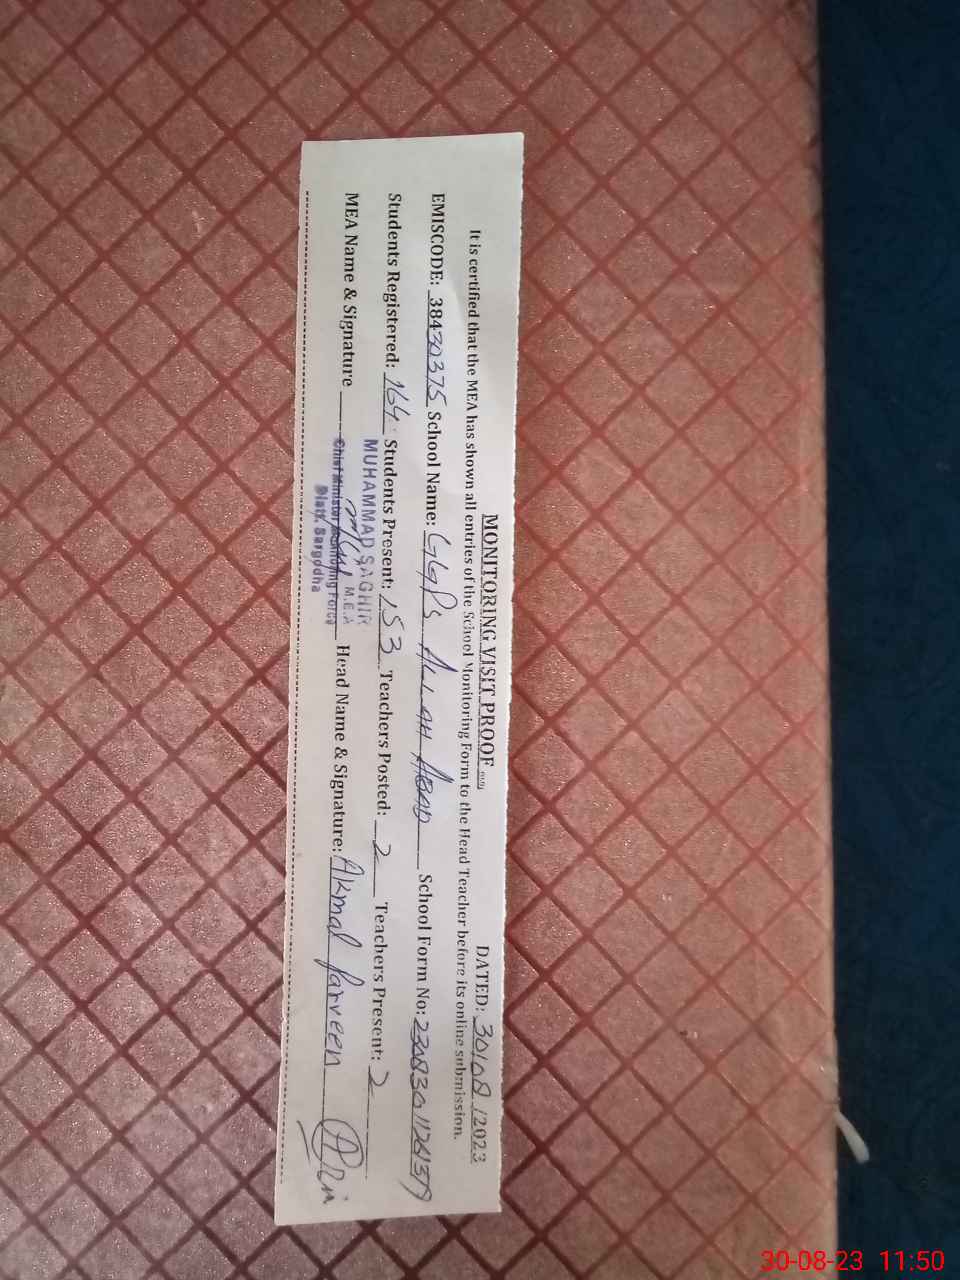 MONITORING VISIT PROOF
DATED: 30/08/2023
It is certified that the MEA has shown all entries of the School Monitoring Form to the Head Teacher before its online submission.
EMISCODE: 38430375 School Name: GGPS ALLAH ABAD School Form No:
Students Registered: 164 Students Present: 153 Teachers Posted: 2 Teachers Present: 2
MUHAMMAD SAGHIR
M.E.A
MEA Name & Signature Head Name & Signature: Akmal Parveen
Chief Minister Monitoring Force
Distt. Sargodha
30-08-23 11:50